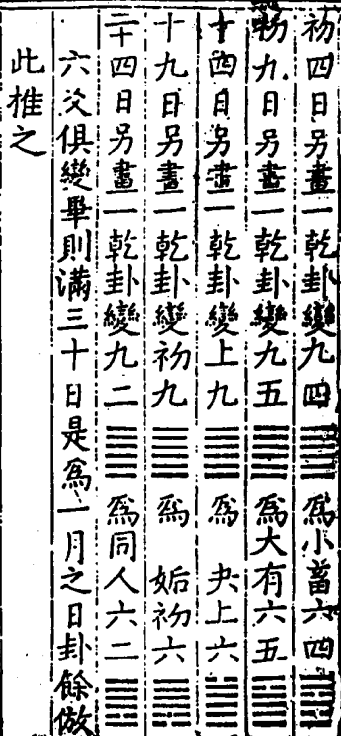 初四日另畫一乾卦變九四䷀爲小畜六四䷈
初九日另畫一乾卦變九五䷀爲大有六五䷍
十四日另畫一乾卦變上九䷀爲夬上六䷪
十九日另畫一乾卦變初九䷀爲姤初六䷫
二十四日另畫一乾卦變九二䷀爲同人六二䷌
六爻俱變畢則滿三十日是爲一月之日卦餘倣
此推之